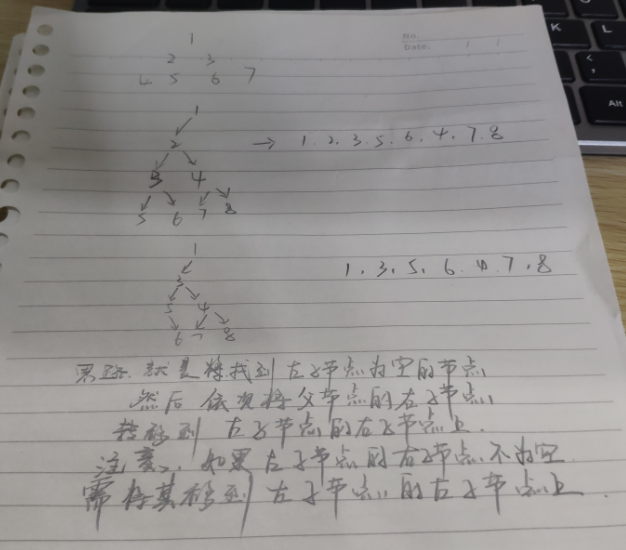 No.
Date:
1
2 3
4 5 6 7
1
2 → 1.2.3.5.6.4.7.8
3 4
5 6 7 8
1
3 1.3.5.6.4.7.8
5 4
6 7 8
思路.就是将找到左子节点为空的节点
然后依次将父节点的右子节点
转移到左子节点的右子节点上.
注意、如果左子节点的右子节点不为空
需将其移到左子节点的左子节点上.
K L
Alt